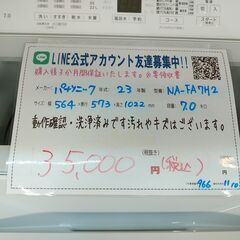 洗い
コース
LINE公式アカウント友達募集中!!
購入後3か月間保証いたします。※要領収書
メーカー パナソニック 年式 23年 型番 NA-FA7H2
サイズ 564 573 1022mm 容量 7.0キロ
動作確認・洗浄済みです汚れやキズはございます。
(税抜き)
35,000円(税込)
966 11/10